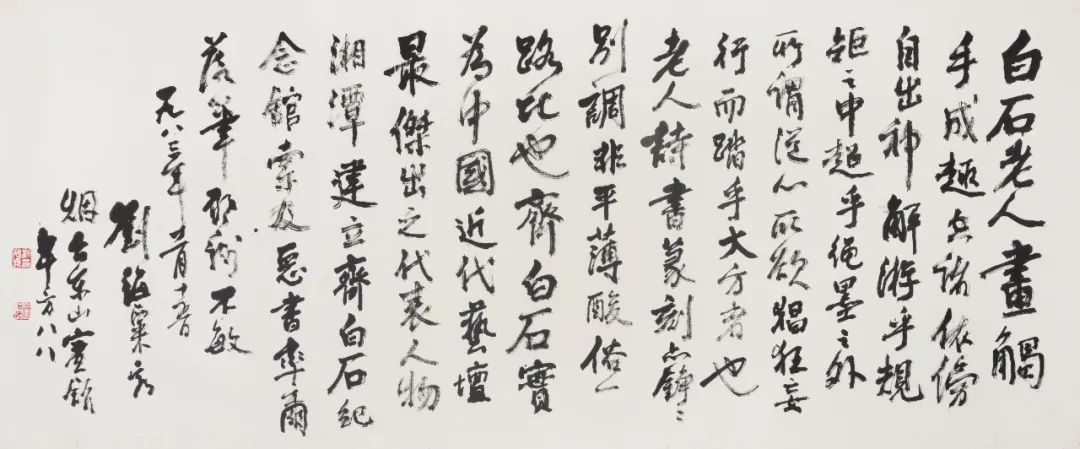 白石老人畫觸
手成趣無諸依傍
自出神解游乎規
矩之中超乎繩墨之外
所謂從心所欲猖狂妄
行而蹈乎大方者也
老人詩書篆刻亦錚〻
別調非平薄酸俗一
路比也齊白石實
為中國近代藝壇
最傑出之代表人物
湘潭建立齊白石紀
念館索及惡書率爾
落筆聊謝不敏
一九八三年月十五日
劉海粟
烟台東山賓館
年方八八